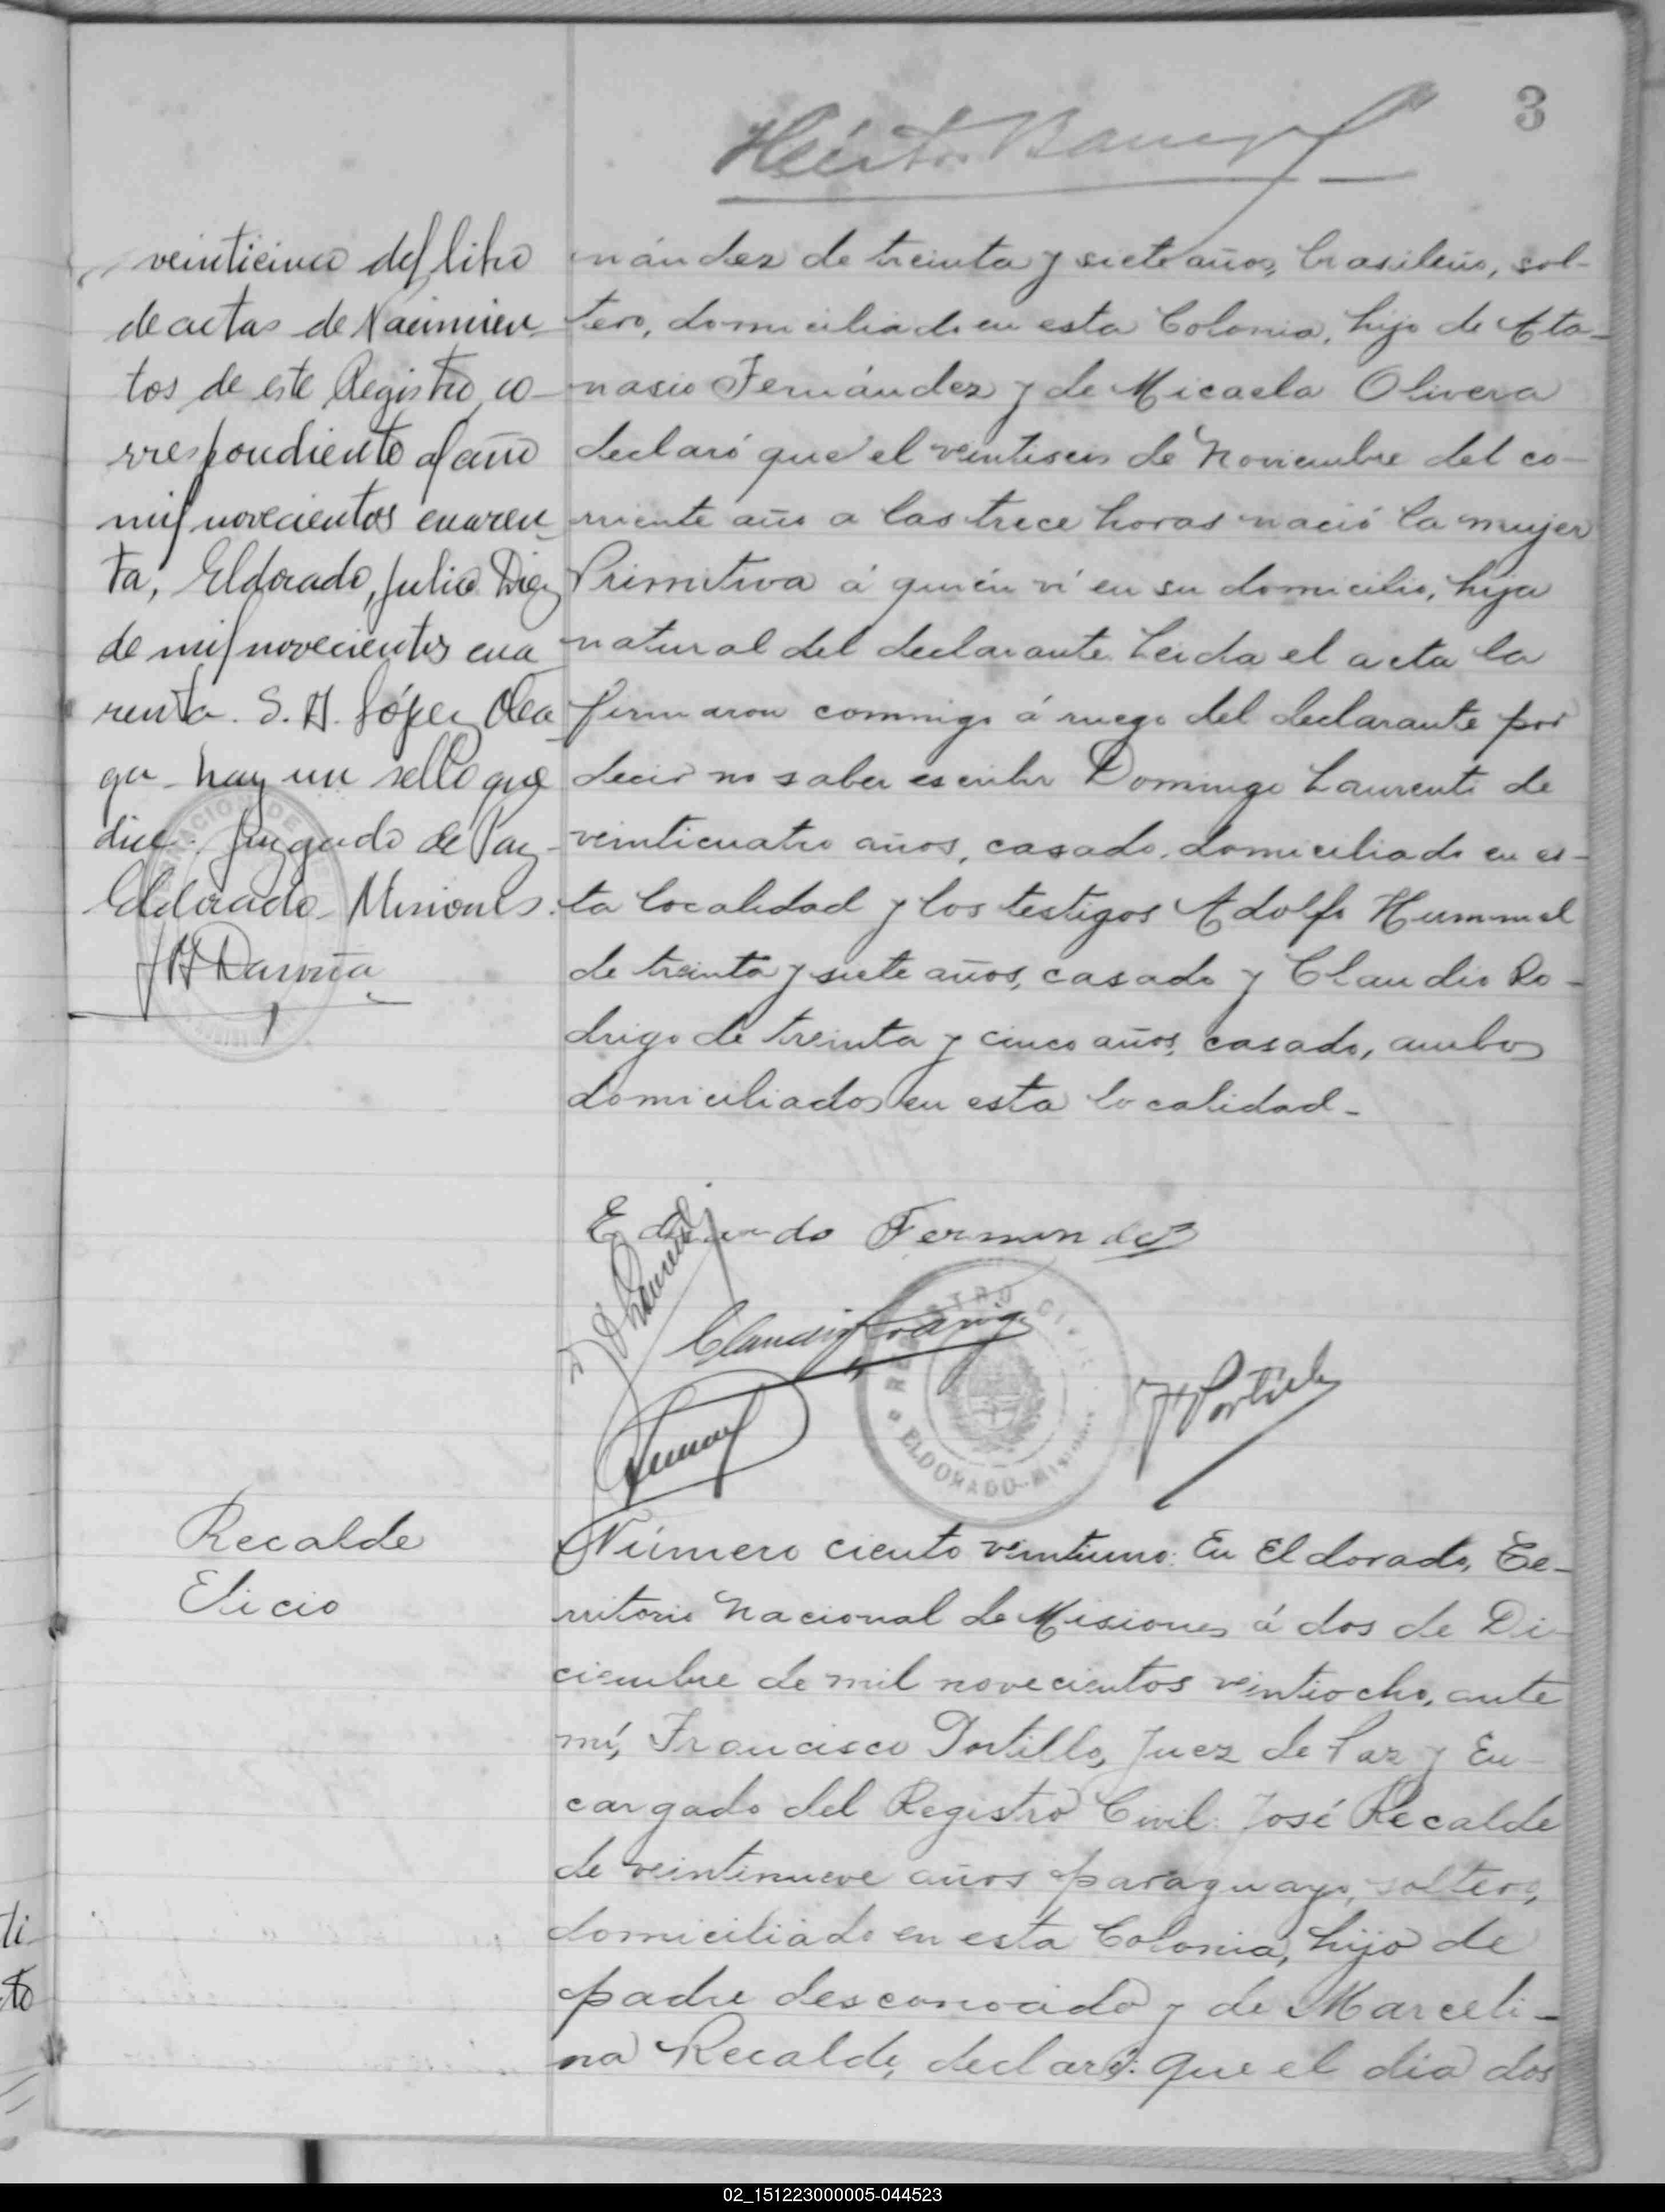 3
Héctor
veinticinco del libro
de actas de Nacimien
tos de este Registro, co-
rrespondiente al año
mil novecientos cuaren-
ta, Eldorado, Julio Diez
de mil novecientos cua
renta. S. A. López Olea
ga hay un sello que
dice: Juzgado de Paz-
Eldorado Misiones.
nández de treinta y siete años, brasileño, sol-
tero, domiciliado en esta Colonia, hijo de Ata-
nasio Fernández y de Micaela Olivera
declaró que el veintiseis de Noviembre del co-
rriente año a las trece horas nació la mujer
Primitiva á quién ví en su domicilio, hija
natural del declarante. Leida el acta la
firmaron conmigo á ruego del declarante por
decir no saber escribir Domingo Laurenti de
veinticuatro años, casado, domiciliado en es-
ta localidad y los testigos Adolfo Hummel
de treinta y siete años, casado y Claudio Ro-
drigo de treinta y cinco años, casado, ambos
domiciliados en esta localidad-
Eduardo Fernandez
Claudio Rodrigo
REGISTRO CIVIL
ELDORADO-Misiones
F Portillo
Recalde
Elicio
Número ciento veintiuno: En Eldorado, Te-
rritorio Nacional de Misiones á dos de Di-
ciembre de mil novecientos veintiocho, ante
mí, Francisco Portillo, Juez de Paz y En-
cargado del Registro Civil: José Recalde
de veintinueve años paraguayo, soltero,
domiciliado en esta Colonia, hijo de
padre desconocido y de Marceli-
na Recalde, declaró: que el día dos
ti
to
02_151223000005-044523